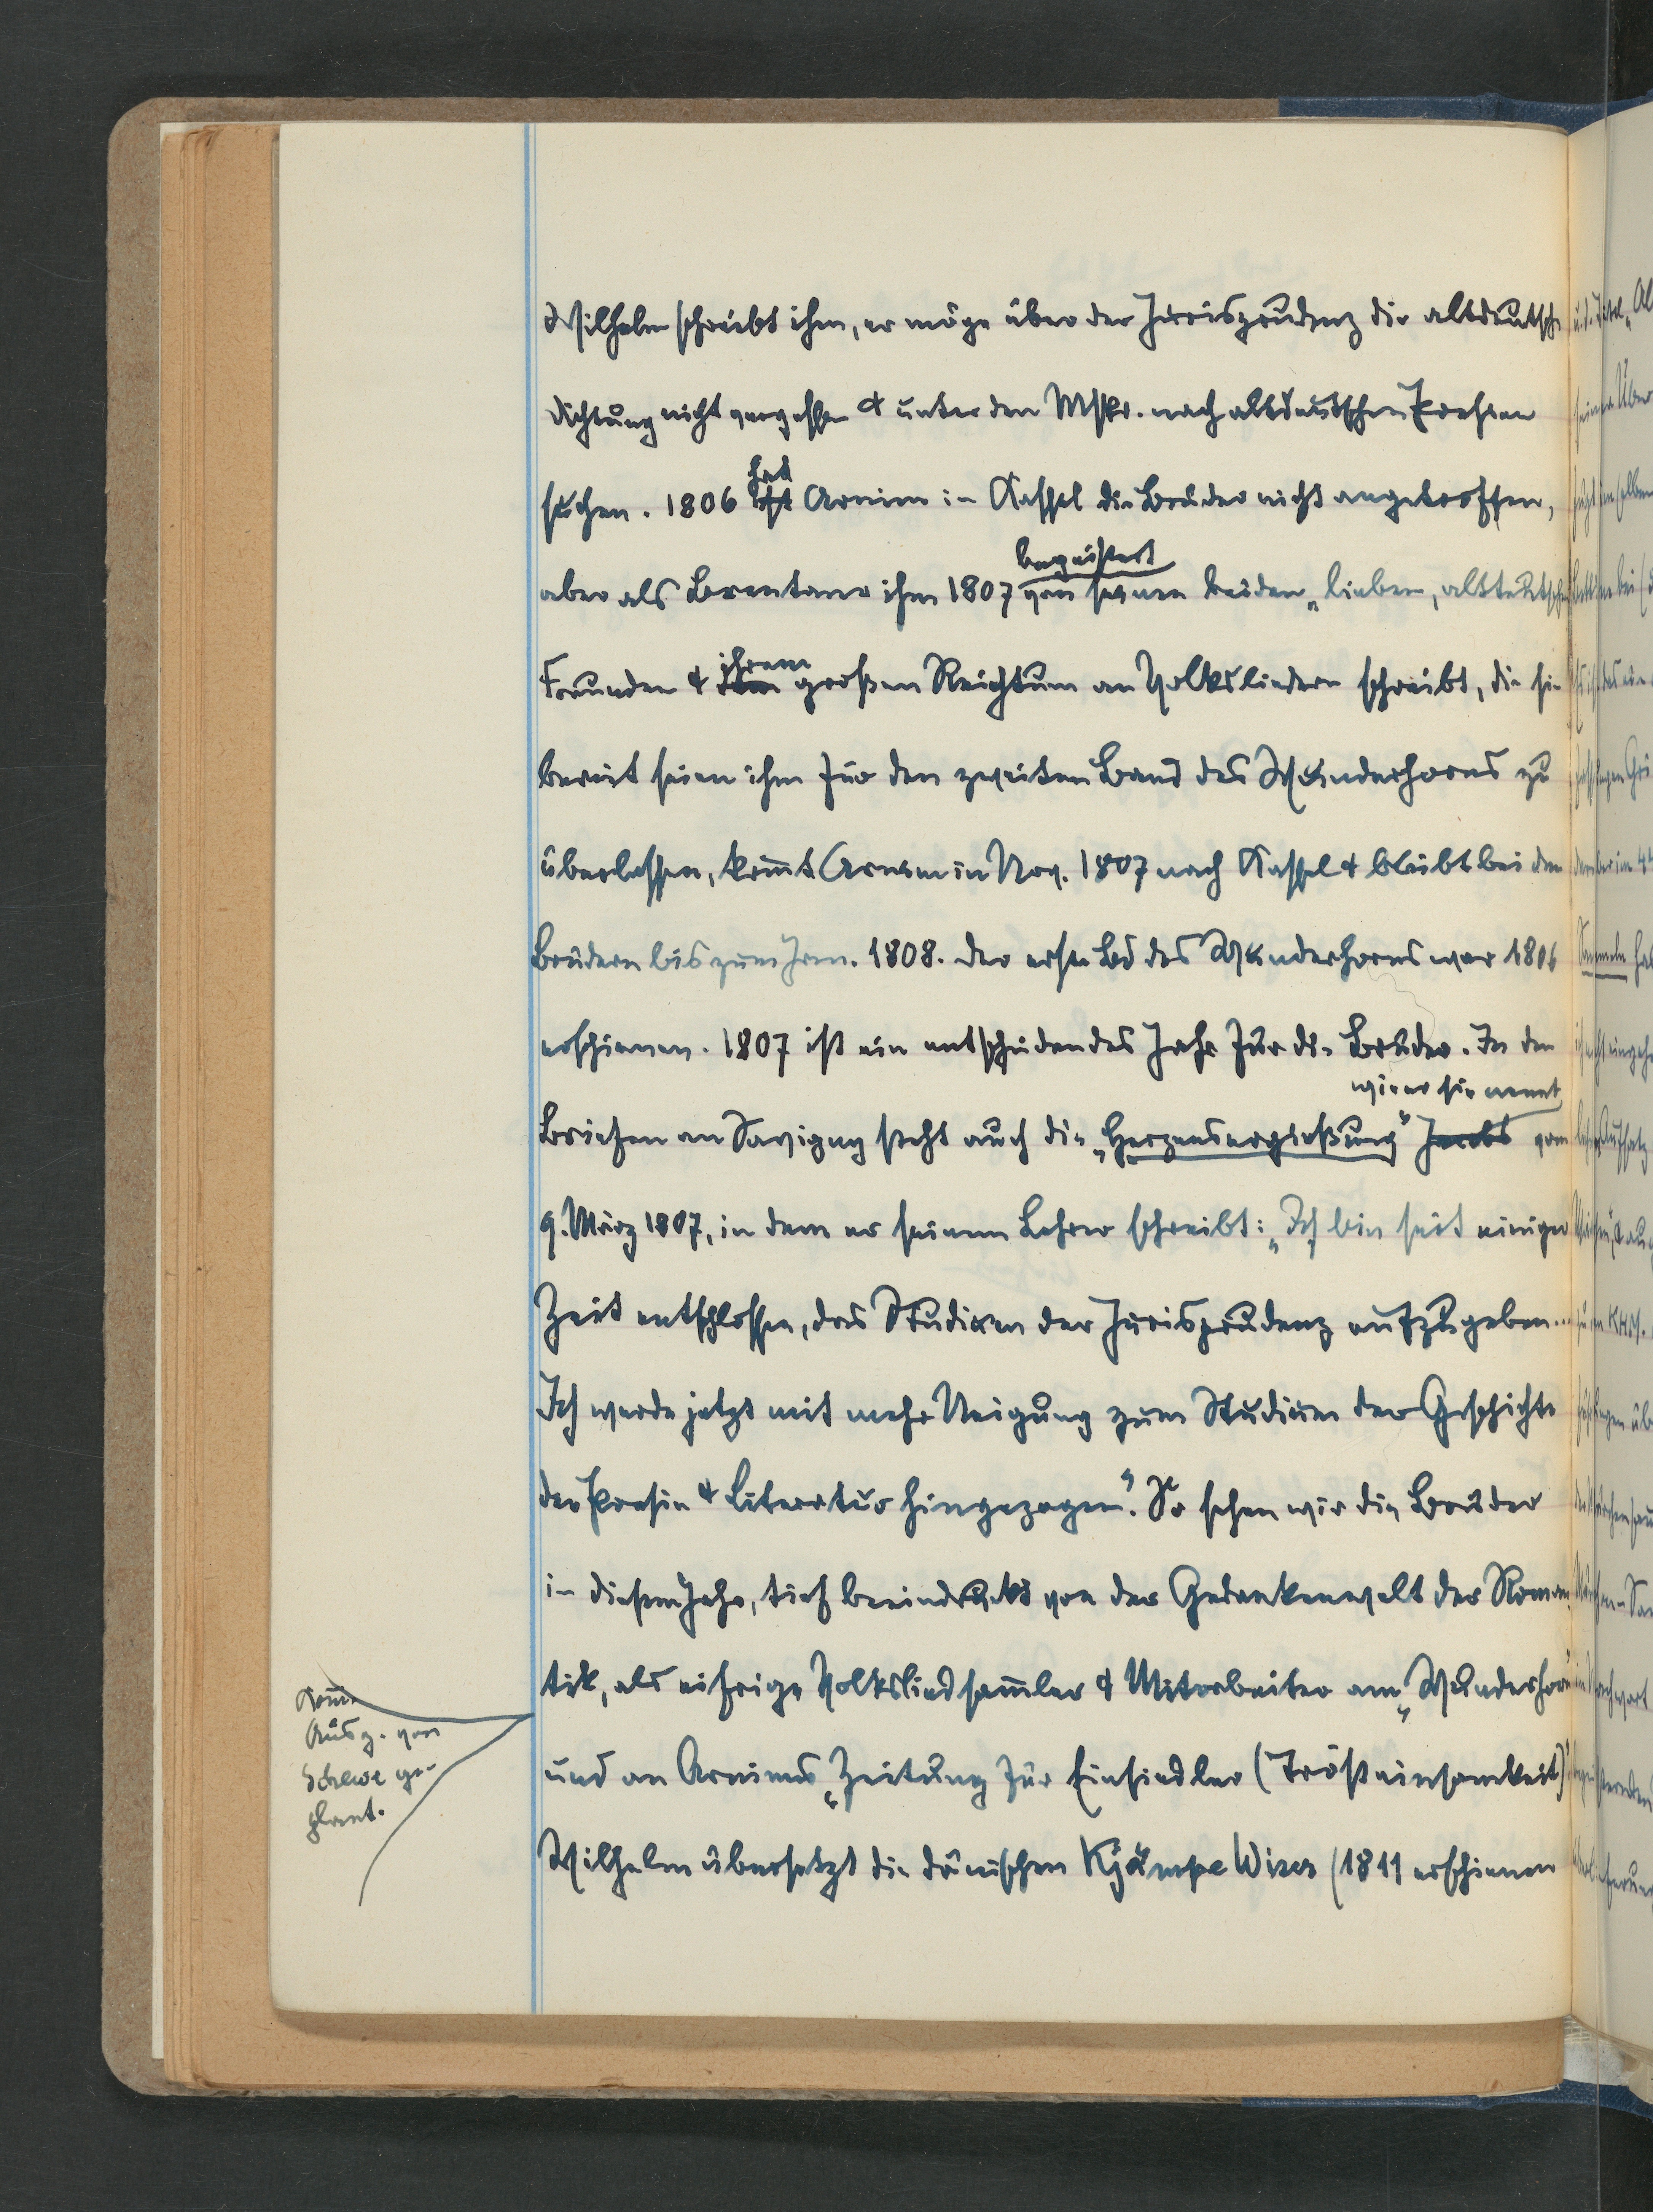 Wilhelm schreibt ihm, er möge über der Jurisprudenz die altdeutsche
Dichtung nicht vergessen & unter den Mskr. nach altdeutschen Poesien
hat
suchen. 1806 Arnim in Kassel die Brüder nicht angetroffen,
begeistert
aber als Brentano ihm 1807 von seinen beiden „lieben, altteutschen
ihrem
Freunden & großen Reichtum an Volksliedern schreibt, die sie
bereit seien ihm für den zweiten Band des Wunderhorns zu
überlassen, kom̅t Arnim im Nov. 1807 nach Kassel & bleibt bei den
Brüdern bis zum Jan. 1808. Der erste Bd des Wunderhorns war 1806
erschienen. 1807 ist ein entscheidendes Jahr für die Brüder. In den
wie er sie nennt
Briefen an Savigny steht auch die „Herzensergießung" Jacobs vom
9. März 1807, in dem er seinem Lehrer schreibt: „Ich bin seit einiger
Zeit entschlossen, das Studium der Jurisprudenz aufzugeben...
Ich werde jetzt mit mehr Neigung zum Studium der Geschichte
der Poesie & Literatur hingezogen". So sehen wir die Brüder
in diesem Jahr, tief beeindruckt von der Gedankenwelt der Roman
tik, als eifrige Volksliedsam̅ler & Mitarbeiter am „Wunderhorn
und an Arnims „Zeitung für Einsiedler (Trösteinsamkeit)"
Wilhelm übersetzt die dänischen Kjämpe Wiser (1811 erschienen
Kom̅.
Ausg. von
Schewe ge-
plant.